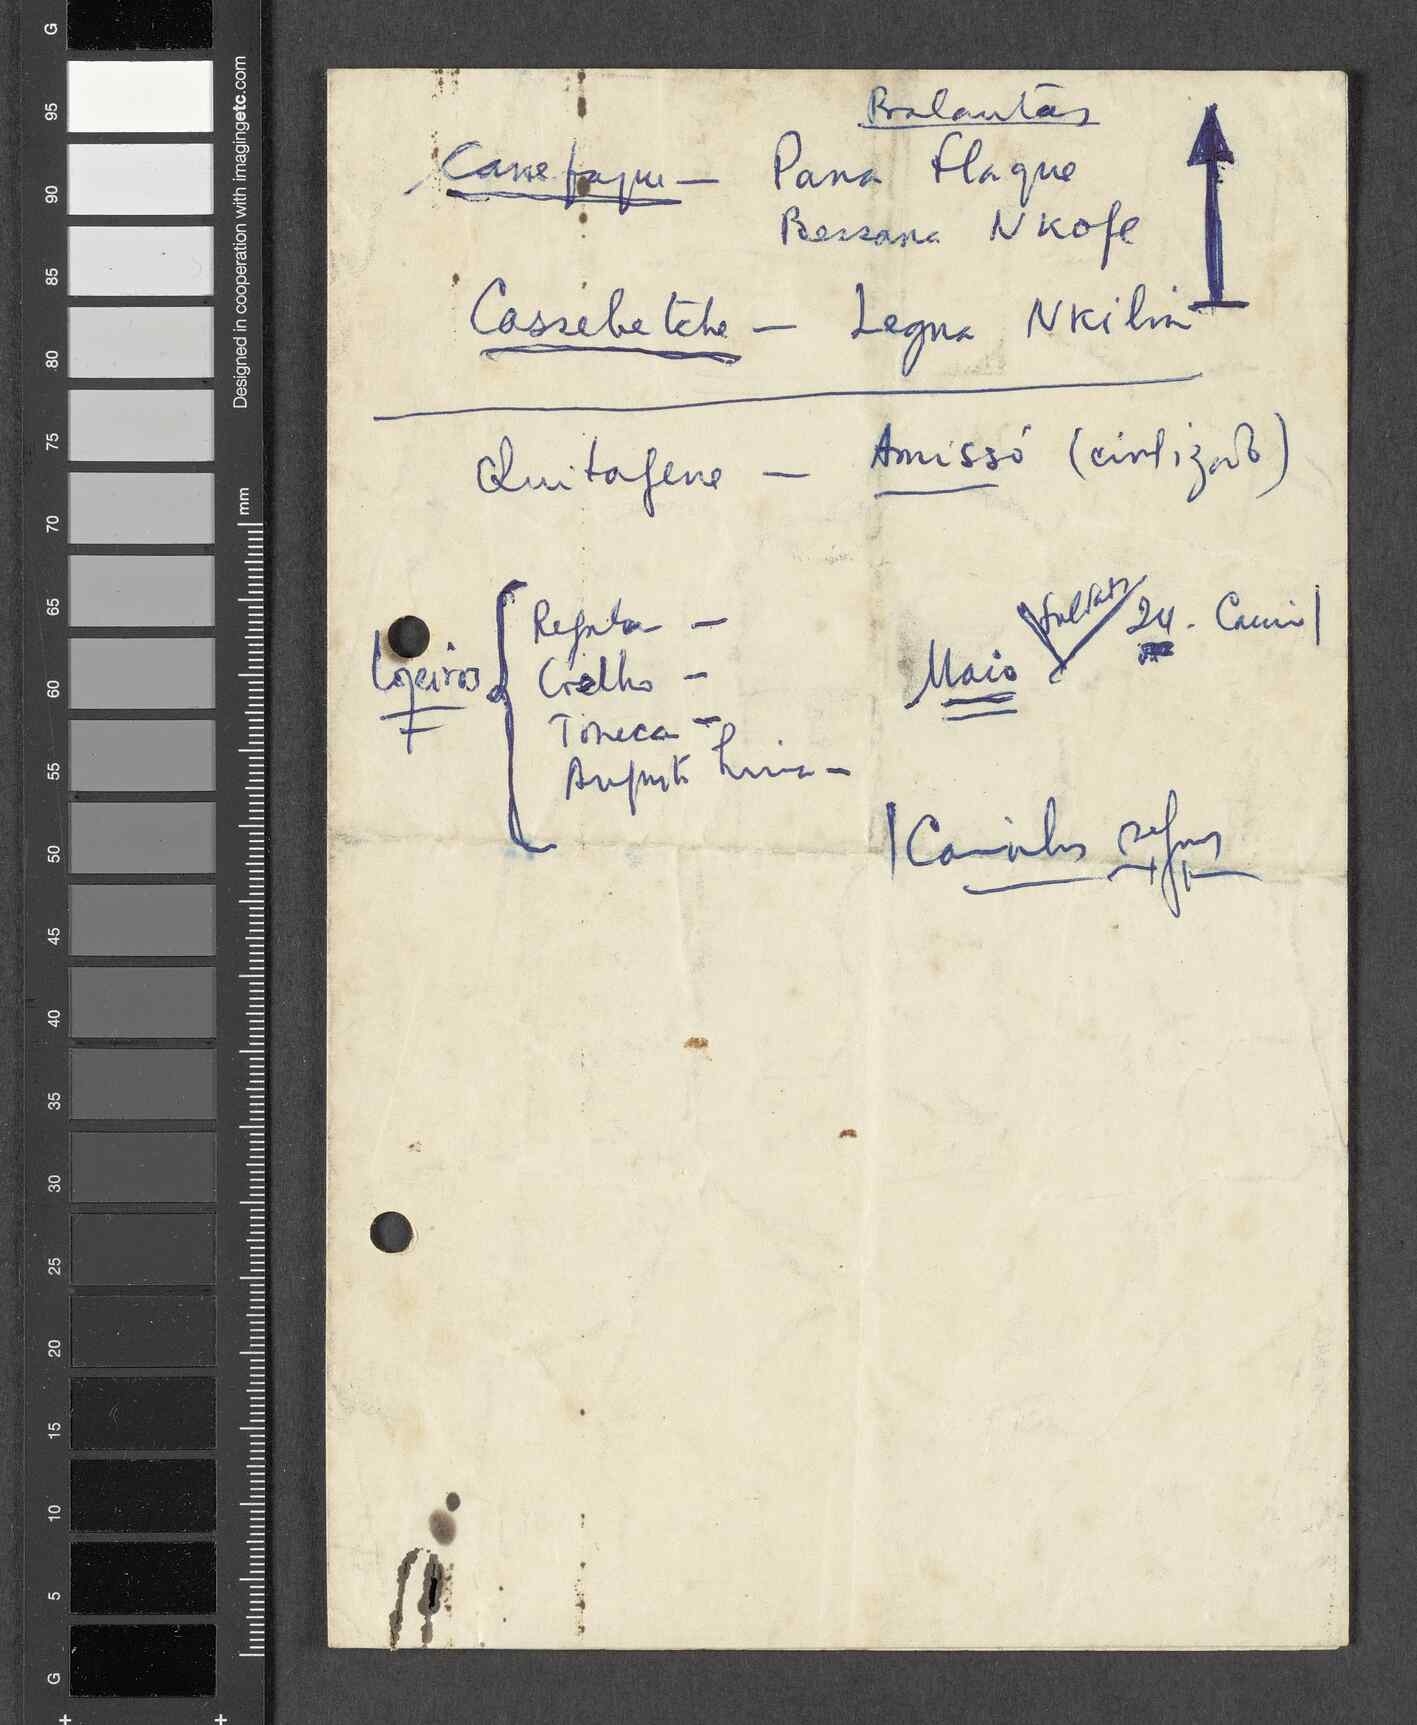 Balantas
Canefaque — Pana Flaque
Bessana Nkofe
Cassebetche — Legna Nkilin
Quitafene — Amissó (civilizado)
Lojeiros
Coelho —
Toneca —
Augusto Lima —
Maio
24 -
Designed in cooperation with imagingetc.com
mm
G
95
90
85
80
75
70
65
60
55
50
45
40
35
30
25
20
15
10
5
G